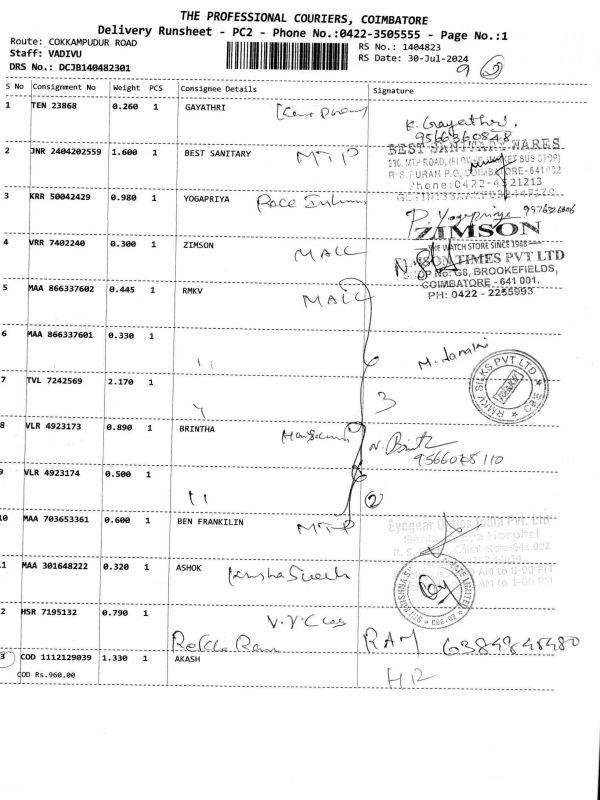 THE PROFESSIONAL COURIERS, COIMBATORE
Delivery Runsheet - PC2 - Phone No.:0422-3505555 - Page No.:1
Route: COKKAMPUDUR ROAD
Staff: VADIVU
DRS No.: DCJB140482301
RS No.: 1404823
RS Date: 30-Jul-2024
9 2
S No Consignment No Weight PCS Consignee Details Signature
1 TEN 23868 0.260 1 GAYATHRI
K. Gayathri
9566360848
2 JNR 2404202559 1.600 1 BEST SANITARY MTP
BEST SANITARY WARES
R.S.PURAM P.O, COIMBATORE-641002
3 KRR 50042429 0.980 1 YOGAPRIYA
P. Yogapriya
4 VRR 7402240 0.300 1 ZIMSON MALL
ZIMSON
THE WATCH STORE SINCE 1948
TIMES PVT LTD
SHOP No: 68, BROOKEFIELDS,
COIMBATORE - 641 001.
PH: 0422 - 2255993
5 MAA 866337602 0.445 1 RMKV MALL
6 MAA 866337601 0.330 1 "
M. Janaki
RMKV SILKS PVT LTD
7 TVL 7242569 2.170 1 "
3
8 VLR 4923173 0.890 1 BRINTHA
N. Brintha
9566078110
9 VLR 4923174 0.500 1 "
2
10 MAA 703653361 0.600 1 BEN FRANKILIN MTP
Eyegear Optics India Pvt. Ltd
11 MAA 301648222 0.320 1 ASHOK
12 HSR 7195132 0.790 1
Rekha Ram RAM 6384845480
13 COD 1112129039 1.330 1 AKASH
COD Rs.960.00